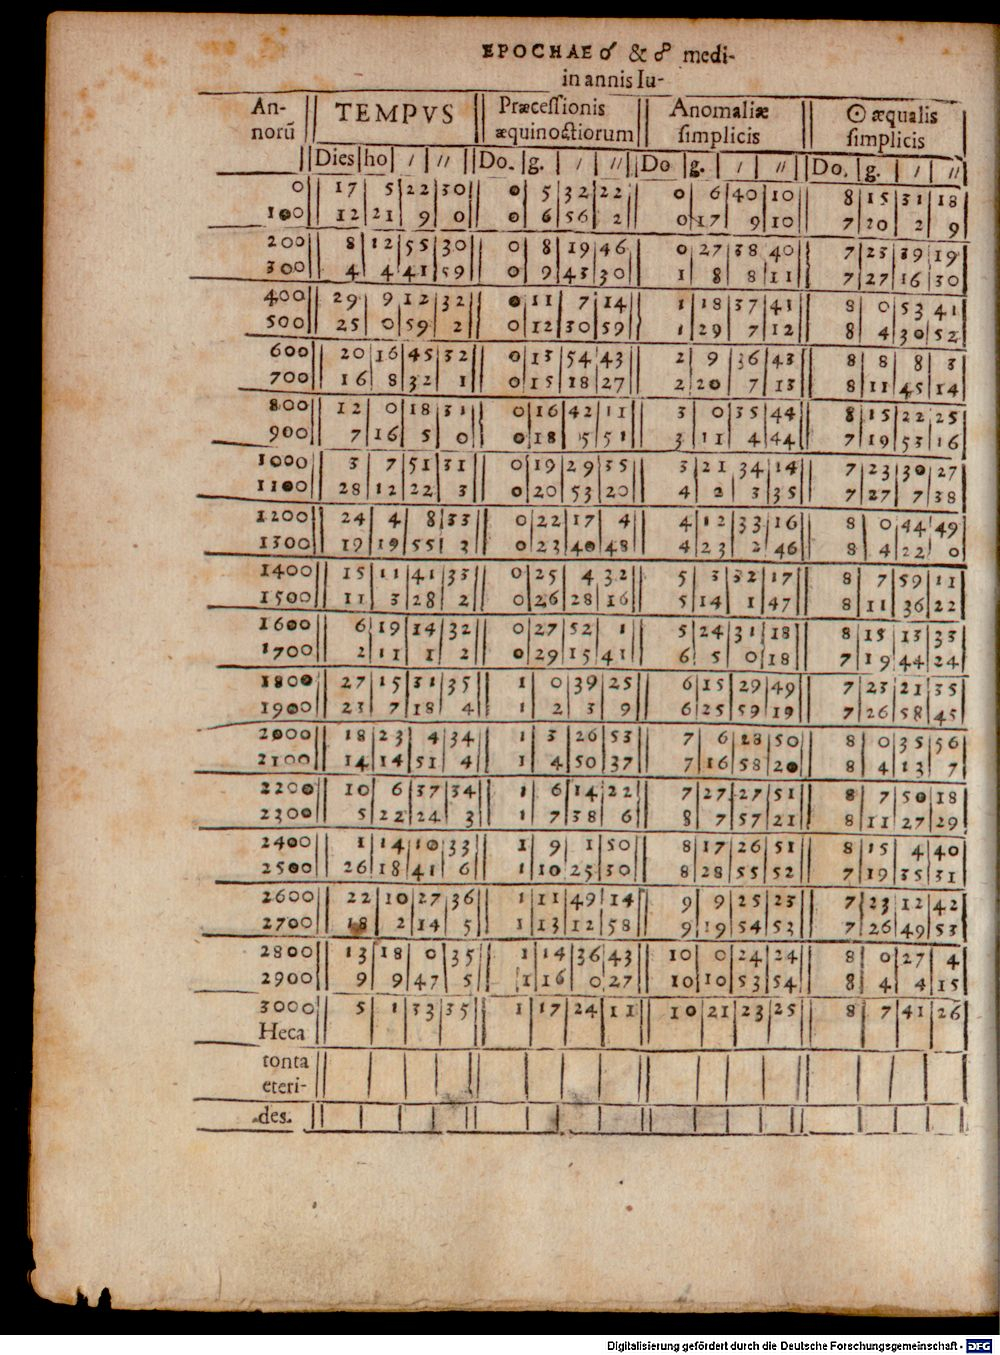 EPOCHAE ☌ & ☍ medi-
in annis Iu-
An- norū || TEMPVS || Præcessionis æquinoctiorum || Anomaliæ simplicis || ☉ æqualis simplicis
|| Dies | ho | / | // || Do. | g. | / | // || Do | g. | / | // || Do. | g. | / | //
0 || 17 | 5 | 22 | 30 || 0 | 5 | 32 | 22 || 0 | 6 | 40 | 10 || 8 | 15 | 31 | 18
100 || 12 | 21 | 9 | 0 || 0 | 6 | 56 | 2 || 0 | 17 | 9 | 10 || 7 | 20 | 2 | 9
200 || 8 | 12 | 55 | 30 || 0 | 8 | 19 | 46 || 0 | 27 | 38 | 40 || 7 | 23 | 39 | 19
300 || 4 | 4 | 41 | 59 || 0 | 9 | 43 | 30 || 1 | 8 | 8 | 11 || 7 | 27 | 16 | 30
400 || 29 | 9 | 12 | 32 || 0 | 11 | 7 | 14 || 1 | 18 | 37 | 41 || 8 | 0 | 53 | 41
500 || 25 | 0 | 59 | 2 || 0 | 12 | 30 | 59 || 1 | 29 | 7 | 12 || 8 | 4 | 30 | 52
600 || 20 | 16 | 45 | 32 || 0 | 13 | 54 | 43 || 2 | 9 | 36 | 43 || 8 | 8 | 8 | 3
700 || 16 | 8 | 32 | 1 || 0 | 15 | 18 | 27 || 2 | 20 | 7 | 13 || 8 | 11 | 45 | 14
800 || 12 | 0 | 18 | 31 || 0 | 16 | 42 | 11 || 3 | 0 | 35 | 44 || 8 | 15 | 22 | 25
900 || 7 | 16 | 5 | 0 || 0 | 18 | 5 | 51 || 3 | 11 | 4 | 44 || 7 | 19 | 53 | 16
1000 || 3 | 7 | 51 | 31 || 0 | 19 | 29 | 35 || 3 | 21 | 34 | 14 || 7 | 23 | 30 | 27
1100 || 28 | 12 | 22 | 3 || 0 | 20 | 53 | 20 || 4 | 2 | 3 | 35 || 7 | 27 | 7 | 38
1200 || 24 | 4 | 8 | 33 || 0 | 22 | 17 | 4 || 4 | 12 | 33 | 16 || 8 | 0 | 44 | 49
1300 || 19 | 19 | 55 | 3 || 0 | 23 | 40 | 48 || 4 | 23 | 2 | 46 || 8 | 4 | 22 | 0
1400 || 15 | 11 | 41 | 33 || 0 | 25 | 4 | 32 || 5 | 3 | 32 | 17 || 8 | 7 | 59 | 11
1500 || 11 | 3 | 28 | 2 || 0 | 26 | 28 | 16 || 5 | 14 | 1 | 47 || 8 | 11 | 36 | 22
1600 || 6 | 19 | 14 | 32 || 0 | 27 | 52 | 1 || 5 | 24 | 31 | 18 || 8 | 15 | 13 | 33
1700 || 2 | 11 | 1 | 2 || 0 | 29 | 15 | 41 || 6 | 5 | 0 | 18 || 7 | 19 | 44 | 24
1800 || 27 | 15 | 31 | 35 || 1 | 0 | 39 | 25 || 6 | 15 | 29 | 49 || 7 | 23 | 21 | 35
1900 || 23 | 7 | 18 | 4 || 1 | 2 | 3 | 9 || 6 | 25 | 59 | 19 || 7 | 26 | 58 | 45
2000 || 18 | 23 | 4 | 34 || 1 | 3 | 26 | 53 || 7 | 6 | 28 | 50 || 8 | 0 | 35 | 56
2100 || 14 | 14 | 51 | 4 || 1 | 4 | 50 | 37 || 7 | 16 | 58 | 20 || 8 | 4 | 13 | 7
2200 || 10 | 6 | 37 | 34 || 1 | 6 | 14 | 22 || 7 | 27 | 27 | 51 || 8 | 7 | 50 | 18
2300 || 5 | 22 | 24 | 3 || 1 | 7 | 38 | 6 || 8 | 7 | 57 | 21 || 8 | 11 | 27 | 29
2400 || 1 | 14 | 10 | 33 || 1 | 9 | 1 | 50 || 8 | 17 | 26 | 51 || 8 | 15 | 4 | 40
2500 || 26 | 18 | 41 | 6 || 1 | 10 | 25 | 30 || 8 | 28 | 55 | 52 || 7 | 19 | 35 | 31
2600 || 22 | 10 | 27 | 36 || 1 | 11 | 49 | 14 || 9 | 9 | 25 | 23 || 7 | 23 | 12 | 42
2700 || 18 | 2 | 14 | 5 || 1 | 13 | 12 | 58 || 9 | 19 | 54 | 53 || 7 | 26 | 49 | 53
2800 || 13 | 18 | 0 | 35 || 1 | 14 | 36 | 43 || 10 | 0 | 24 | 24 || 8 | 0 | 27 | 4
2900 || 9 | 9 | 47 | 5 || 1 | 16 | 0 | 27 || 10 | 10 | 53 | 54 || 8 | 4 | 4 | 15
3000 || 5 | 1 | 33 | 35 || 1 | 17 | 24 | 11 || 10 | 21 | 23 | 25 || 8 | 7 | 41 | 26
Heca
tonta
eteri-
des.
Digitalisierung gefördert durch die Deutsche Forschungsgemeinschaft - DFG